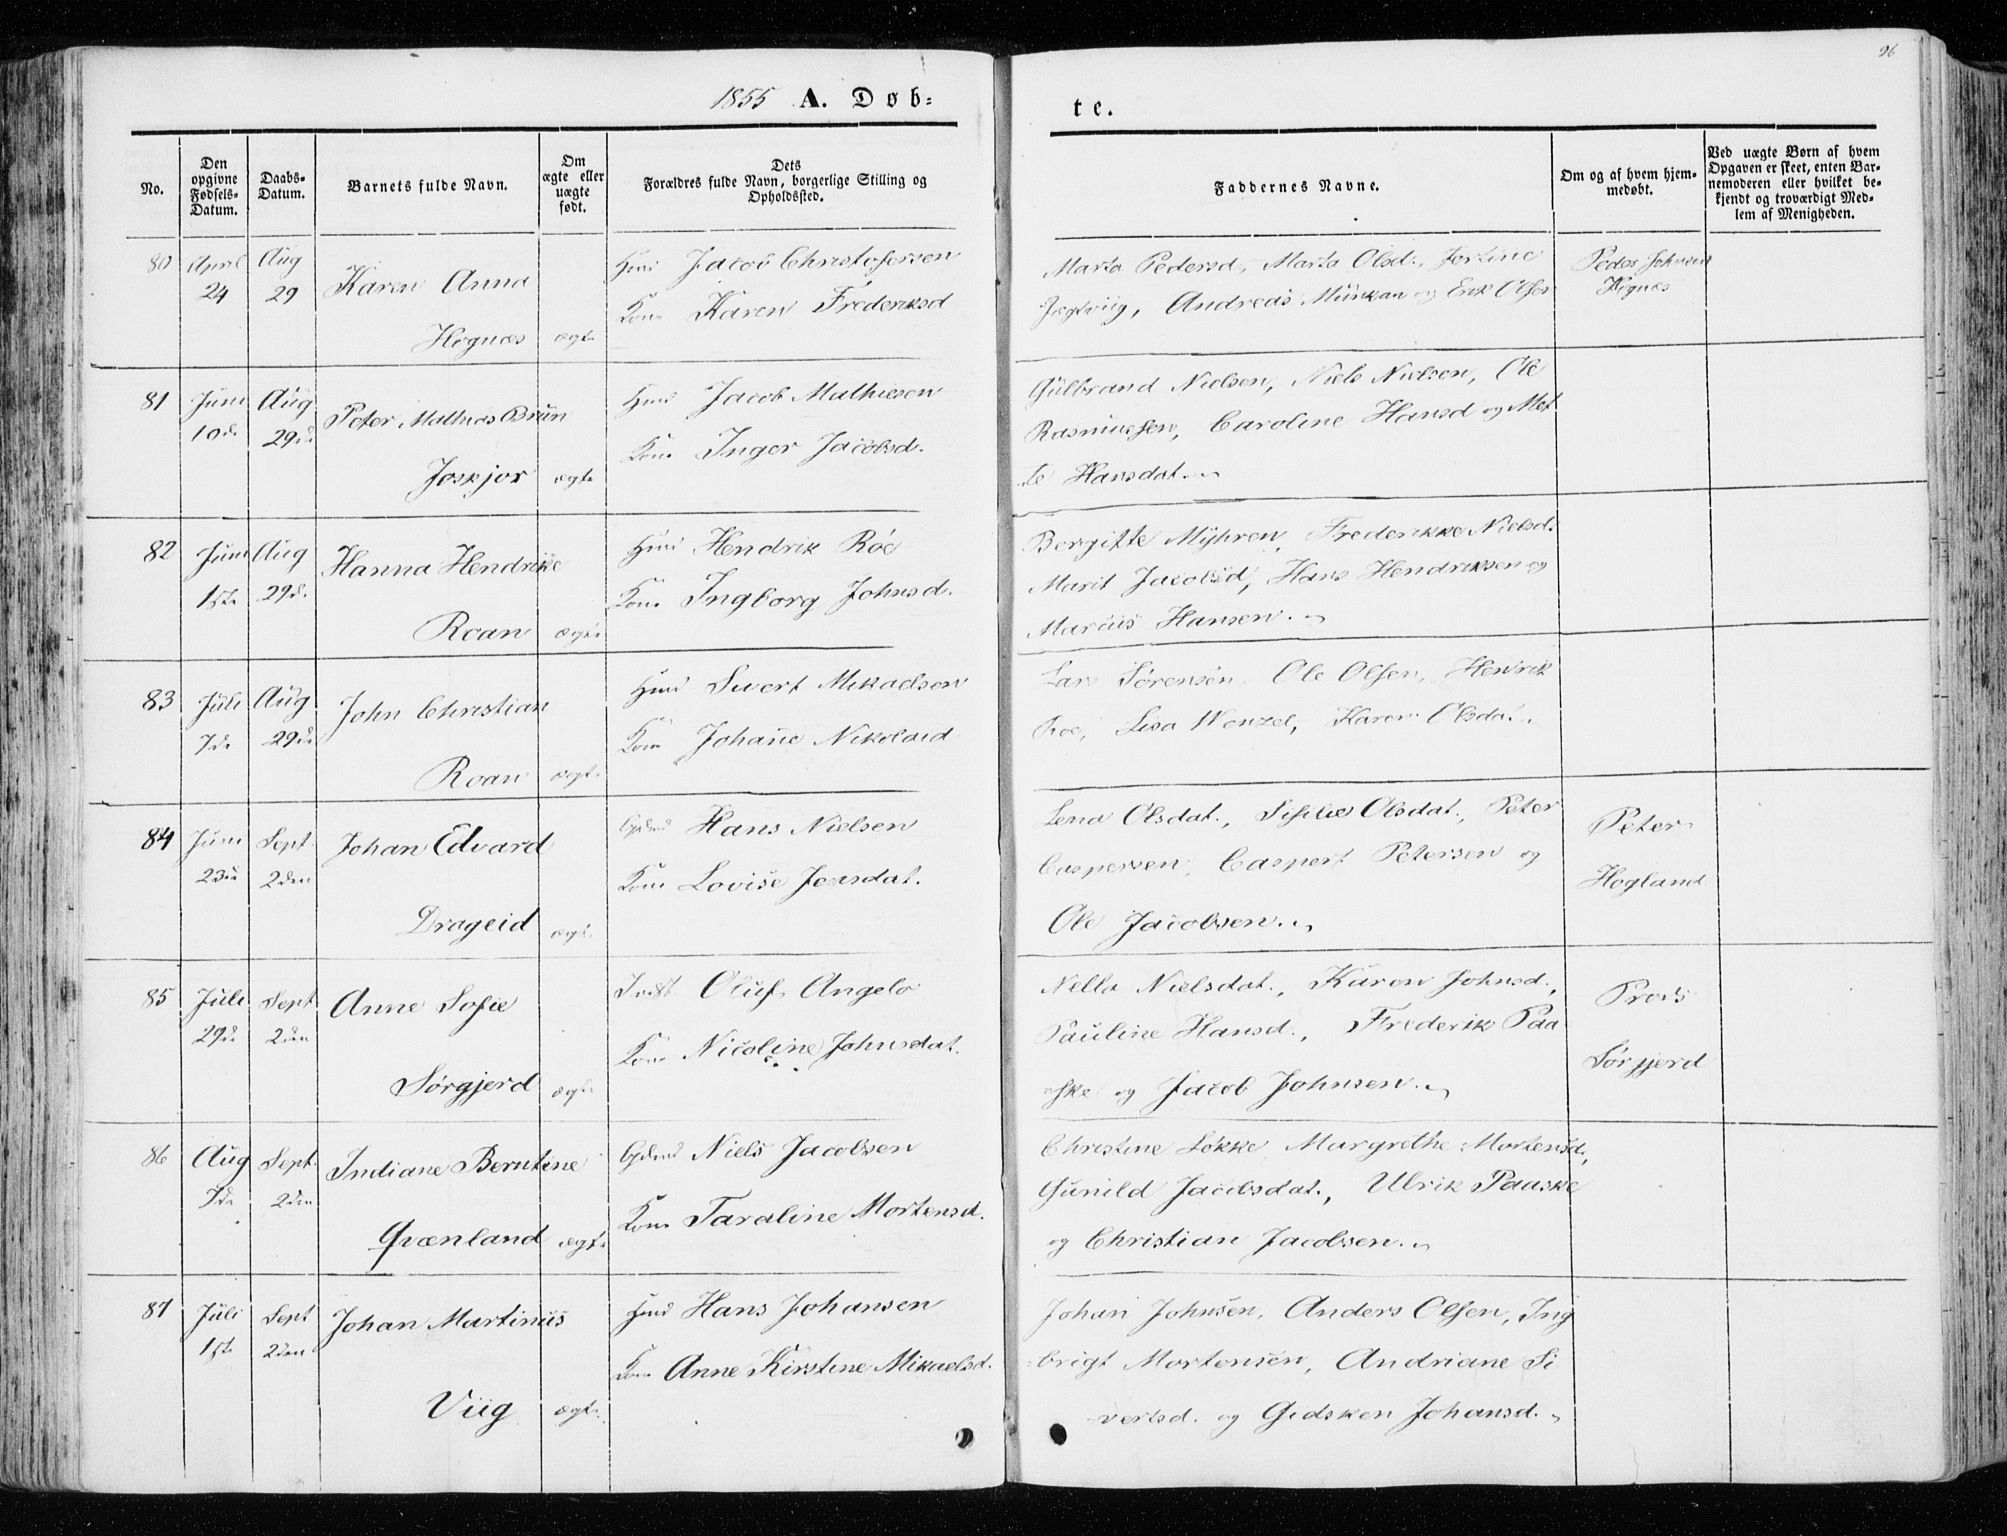 96
1855 A. Døb=
te.
No.
Den opgivne Fødsels-Datum.
Daabs-Datum.
Barnets fulde Navn.
Om ægte eller uægte født.
Dets Forældres fulde Navn, borgerlige Stilling og Opholdssted.
Faddernes Navne.
Om og af hvem hjem-medøbt.
Ved uægte Børn af hvem Opgaven er skeet, enten Bar-nemoderen eller hvilket be-kjendt og troværdigt Med-lem af Menigheden.
80 April Aug Karen Anna Jacob Christofersen
24 29 Kone Karen Fredriksd
Hognæs ægte
Marta Pedersd, Marta Olsd., Jertine
Jægtviig, Andreas Munkan og Erik Olsen
Peder Johnsen
Hognæs
81 Juni Aug Peter Mathias Brun Jacob Mathiesen
10de 29de Kone Inger Jacobsd.
Joskjor ægte
Gulbrand Nielsen, Niels Nielsen, Ole
Rasmussen, Caroline Hansd og Met
te Hansdat.
82 Juni Aug Hanna Hendrikke Hendrik Röe
1ste 29de Kone Ingborg Johnsd.
Roan ægte
Bergitte Myhren, Frederikke Nielsd.
Marit Jacobsd, Hans Hendriksen og
Marcus Hansen.
83 Juli Aug John Christian Sivert Mikaelsen
7de 29de Kone Johane Nikolaid
Roan ægte
Lars Sørensen. Ole Olsen, Henrik
Roe, Lisa Wenzel, Karen Olsdat.
84 Juni Sept. Johan Edvard Gdmd Hans Nielsen
23de 2den Kone Lovise Jensdat.
Drageid ægte
Lena Olsdat., Sisilie Olsdat., Peter
Caspersen, Caspert Petersen og
Ole Jacobsen.
Peter
Hogland
85 Juli Sept Anne Sofie Oluf Angelo
29de 2den Kone Nicoline Johnsdat.
Sørgjerd ægte
Nella Nielsdat., Karen Johnsd.,
Pauline Hansd., Frederik Paa
ske og Jacob Johnsen.
Sørgjerd
86 Aug Sept. Indiane Berntine Gdmd Niels Jacobsen
7de 2den Kone Taraline Mortensd.
Qvænland ægte
Christine Løkke, Margrethe Mortensd.,
Gunild Jacobsdat., Ulrik Paaske
og Christian Jacobsen.
87 Juli Sept Johan Martinus Hans Johansen
1ste 2den Kone Anne Kirstine Mikaelsd.
Viig ægte
Johan Johnsen, Anders Olsen, Ing
brigt Mortensen, Andriane Si
vertsd. og Gidsken Johansd.